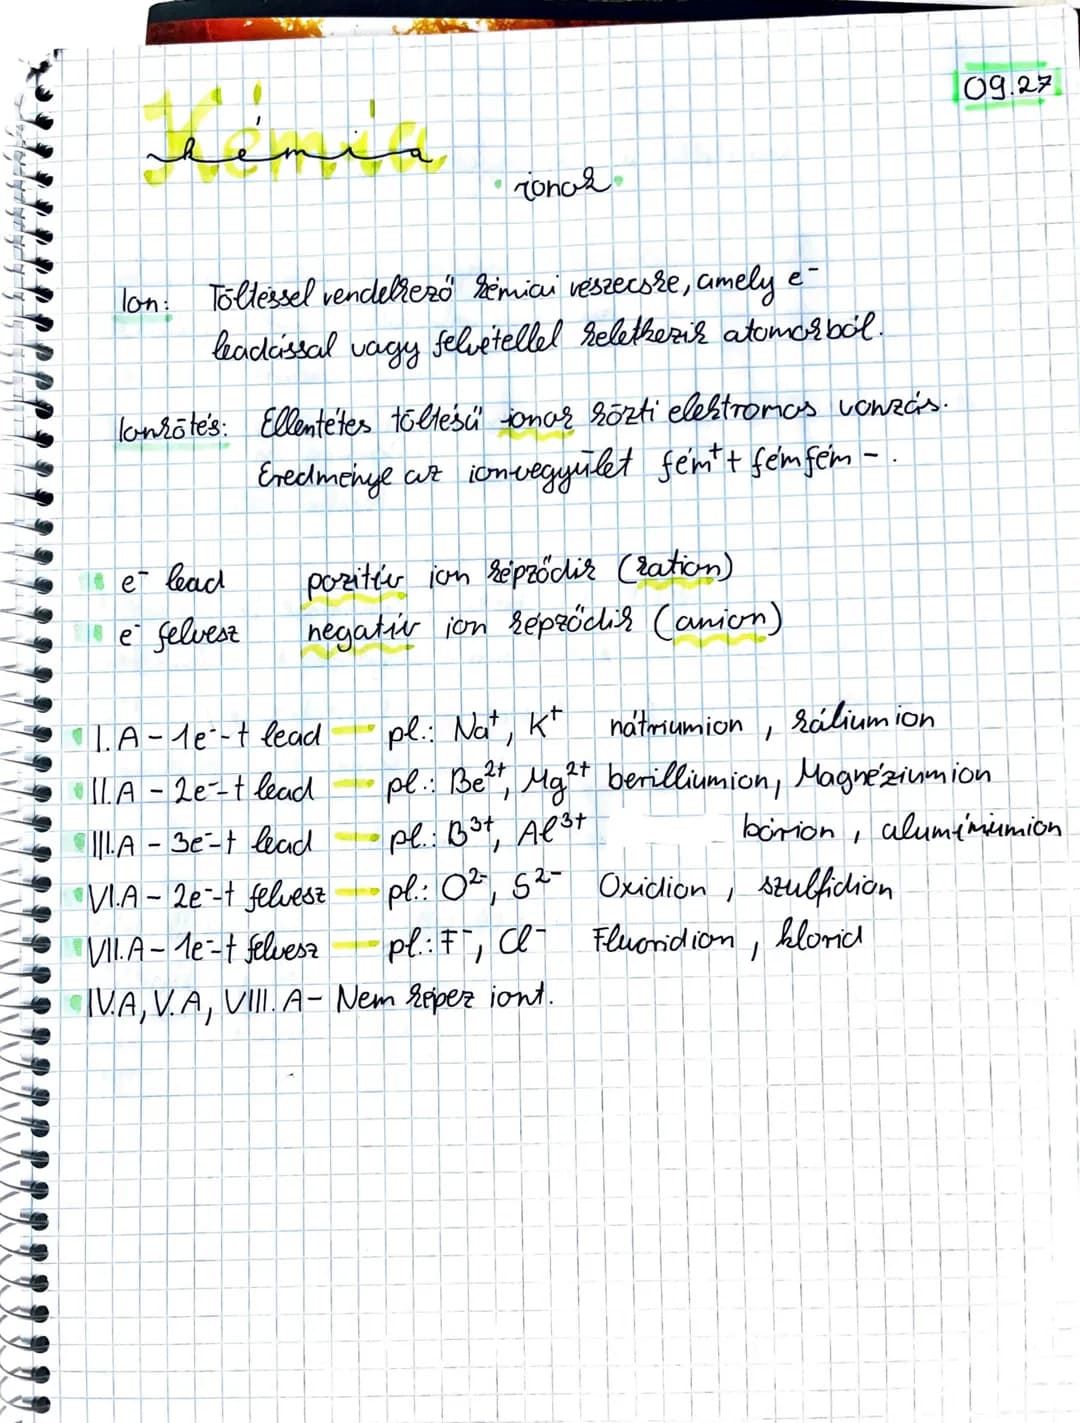 09.27
Kémia
kémia
• ionok •
Ion: Töltéssel rendelkező kémiai részecske, amely e⁻
leadással vagy felvétellel keletkezik atomokból.
Ionkötés: Ellentétes töltésű ionok közti elektromos vonzás.
Eredménye az ionvegyület fém⁺ + fémfém - .
e⁻ lead pozitív ion képződik (kation)
e⁻ felvesz negatív ion képződik (anion)
I.A - 1e⁻-t lead — pl.: Na⁺, K⁺ nátriumion, káliumion
II.A - 2e⁻-t lead — pl.: Be²⁺, Mg²⁺ berilliumion, Magnéziumion
III.A - 3e⁻-t lead — pl.: B³⁺, Al³⁺ bórion, alumíniumion
VI.A - 2e⁻-t felvesz — pl.: O²⁻, S²⁻ Oxidion, szulfidion
VII.A - 1e⁻-t felvesz — pl.: F⁻, Cl⁻ Fluoridion, klorid
IV.A, V.A, VIII.A - Nem képez iont.